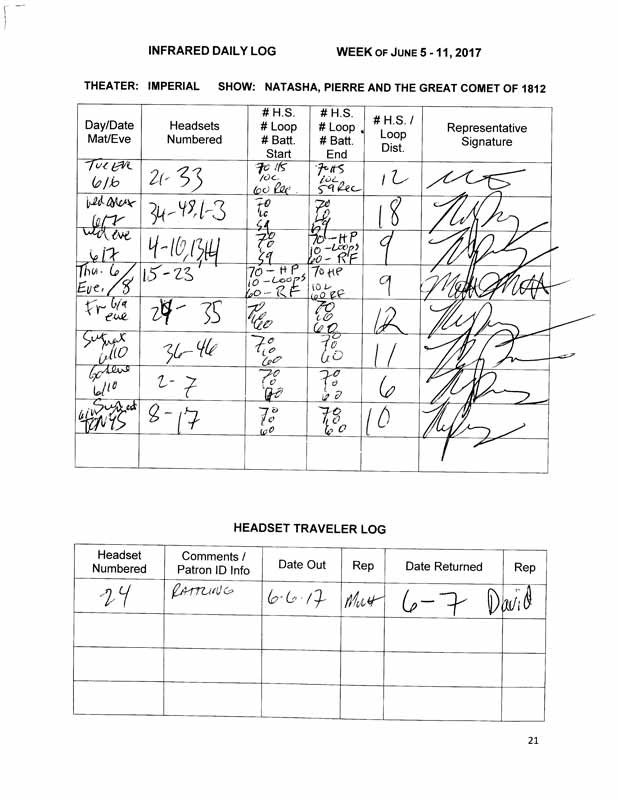 INFRARED DAILY LOG WEEK OF JUNE 5 - 11, 2017
THEATER: IMPERIAL SHOW: NATASHA, PIERRE AND THE GREAT COMET OF 1812
Day/Date Mat/Eve Headsets Numbered # H.S. # Loop # Batt. Start # H.S. # Loop # Batt. End # H.S. / Loop Dist. Representative Signature
Tue Eve 6/6 21-33 70 HS 10L 60 Rec 70 HS 10L 59 Rec 12
Wed 6/7 34-48,1-3 70 10 59 70 10 59 18
Wed eve 6/7 4-10, 70 10 59 70-HP 10-Loops 60-RF 9
Thu. 6/8 Eve, 15-23 70-HP 10-Loops 60-RF 70 HP 10L 60 RF 9
Fr 6/9 eve 24-35 70 10 60 70 10 60 12
6/10 36-46 70 10 60 70 10 60 11
6/10 2-7 70 10 60 70 10 60 6
8-17 70 10 60 70 10 60 10
HEADSET TRAVELER LOG
Headset Numbered Comments / Patron ID Info Date Out Rep Date Returned Rep
24 RATTLING 6-6-17 Matt 6-7 David
21